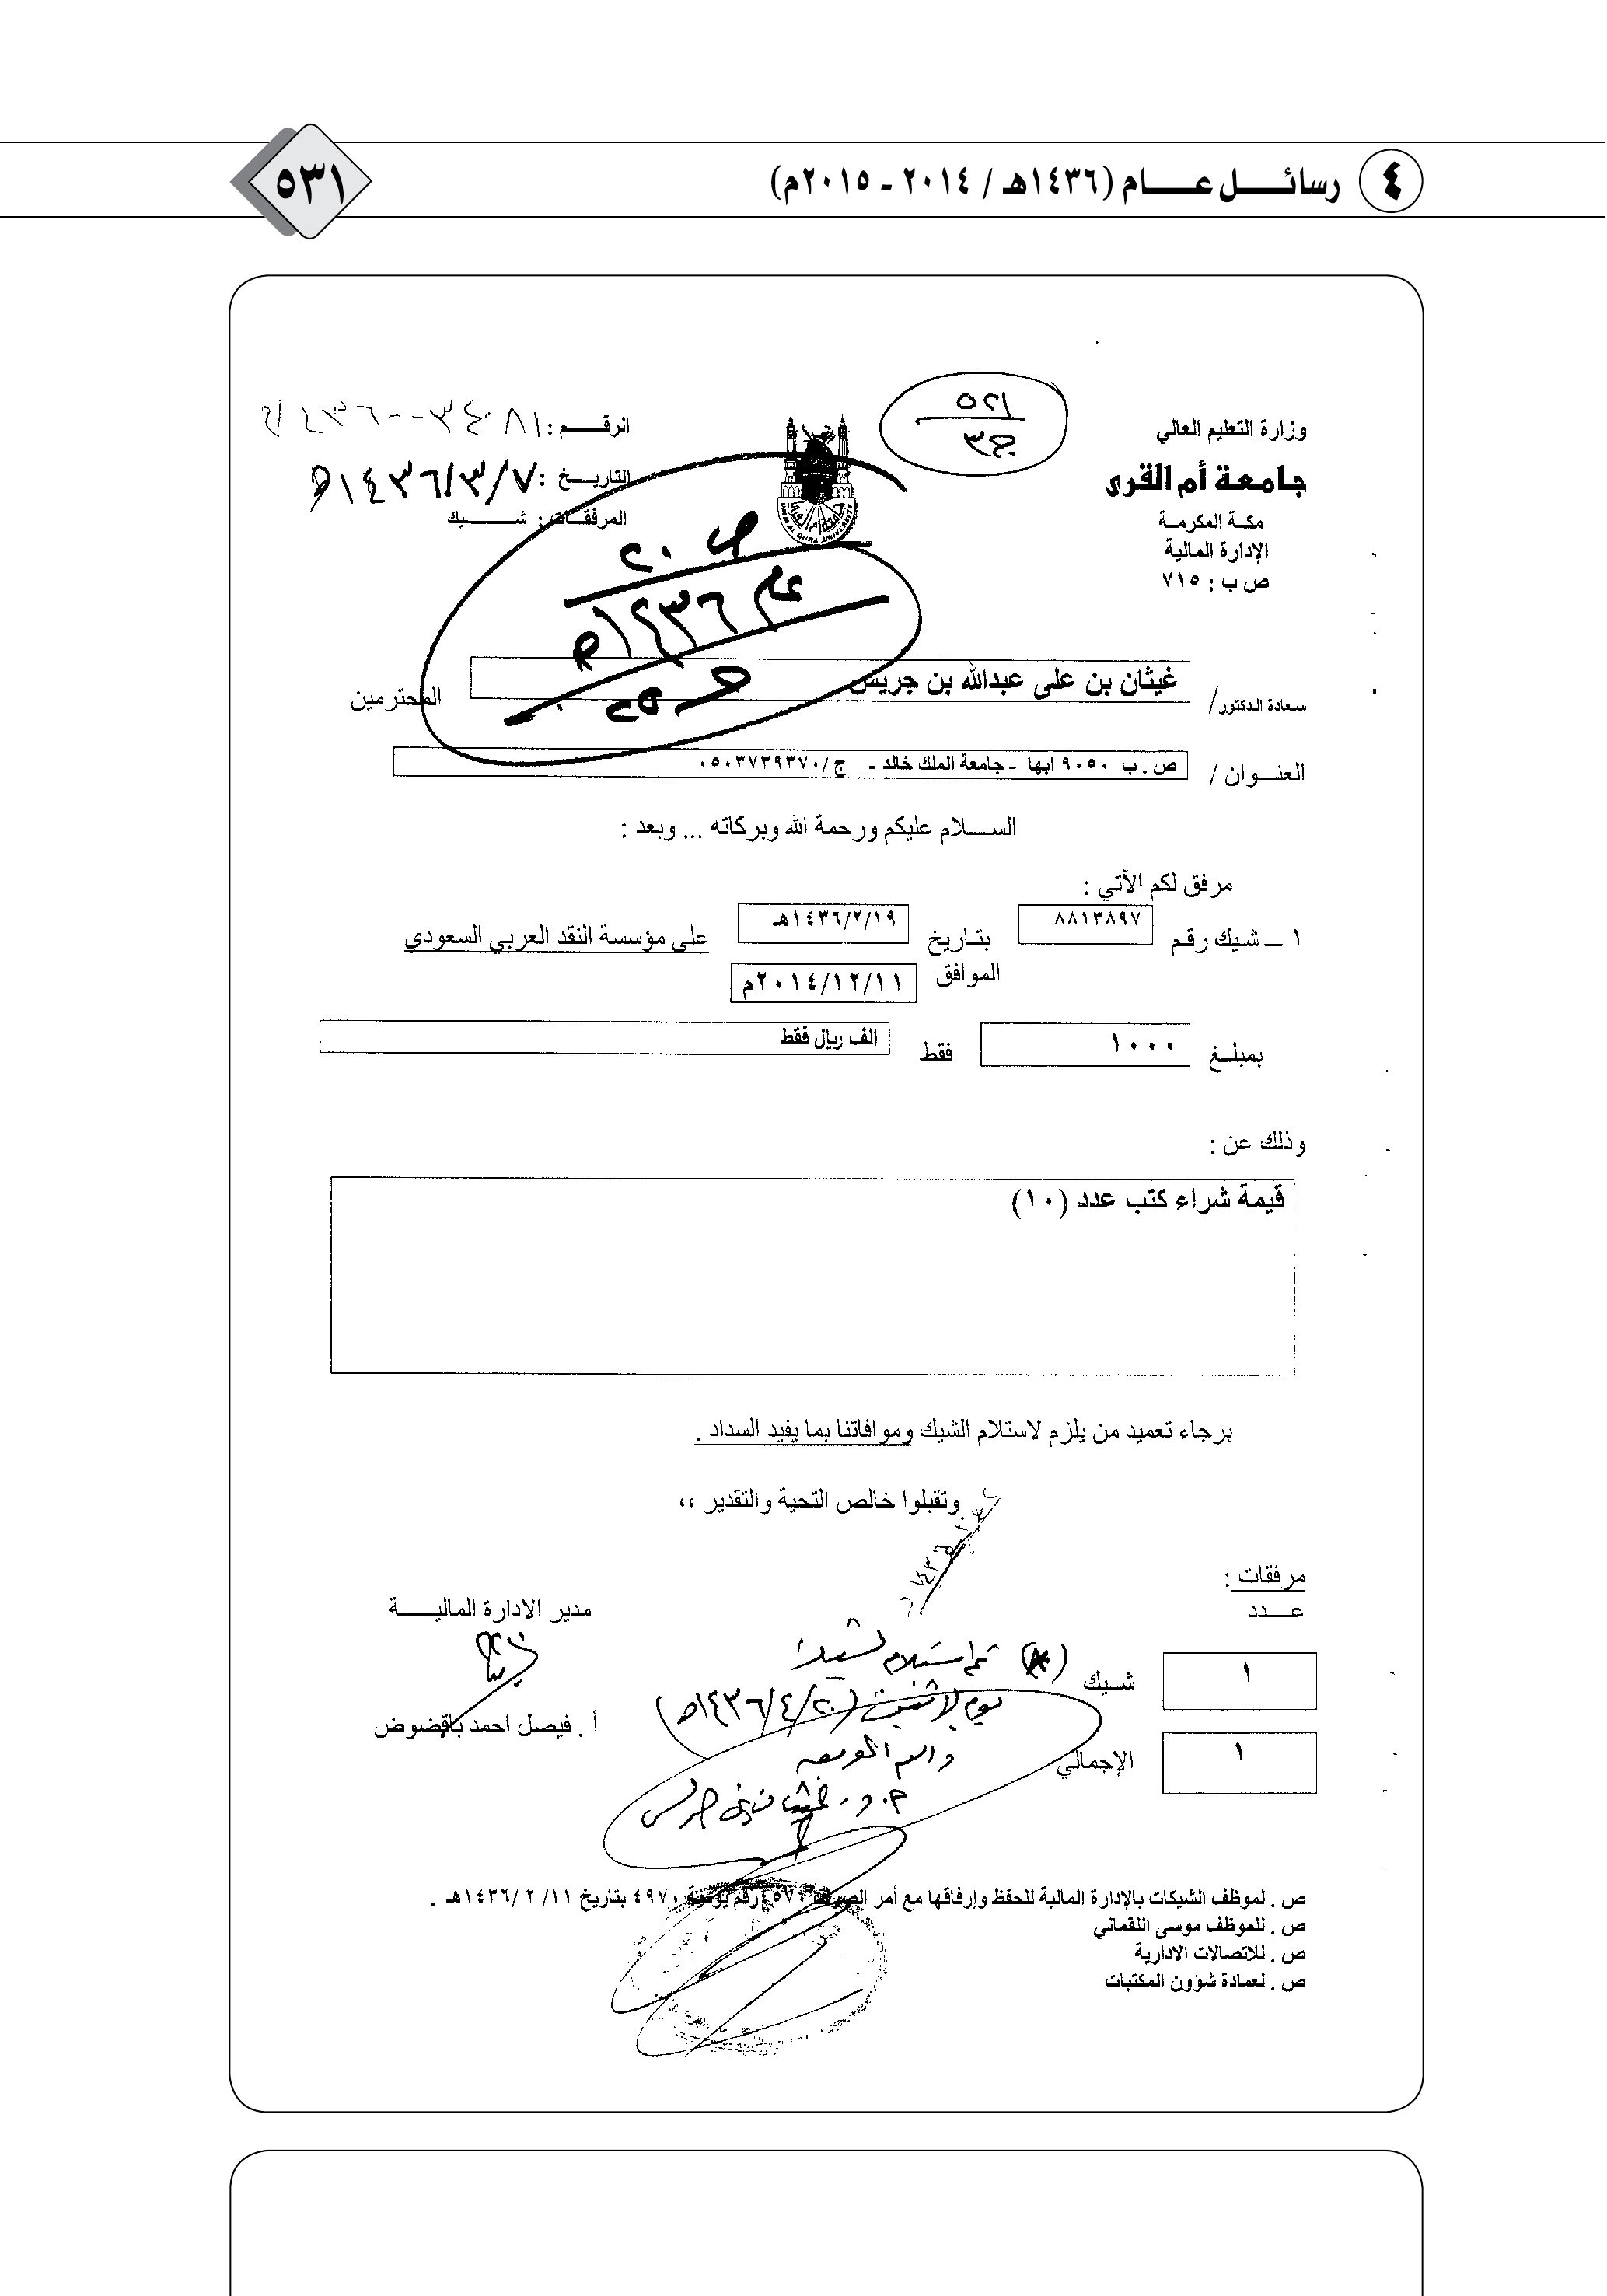 ٤ رسائــــل عــــام (١٤٣٦هـ / ٢٠١٤ - ٢٠١٥م)
٥٣١
٥٢١
ج٣
وزارة التعليم العالي
جامعة أم القرى
مكـة المكرمـة
الإدارة المالية
ص ب : ٧١٥
الرقــــم :
التاريــخ : ١٤٣٦/٣/٧هـ
المرفقـات : شـــــيك
ص ٢٠
عام ١٤٣٦هـ
سعادة الدكتور/ غيثان بن على عبدالله بن جريس المحترمين
العنــوان / ص . ب ٩٠٥٠ ابها - جامعة الملك خالد - ج /٠٥٠٣٧٣٩٣٧٠
الســـلام عليكم ورحمة الله وبركاته ... وبعد :
مرفق لكم الآتي :
١ – شيك رقم ٨٨١٣٨٩٧ بتاريخ ١٤٣٦/٢/١٩هـ على مؤسسة النقد العربي السعودي
الموافق ٢٠١٤/١٢/١١م
بمبلــغ ١٠٠٠ فقط الف ريال فقط
وذلك عن :
قيمة شراء كتب عدد (١٠)
برجاء تعميد من يلزم لاستلام الشيك وموافاتنا بما يفيد السداد .
وتقبلوا خالص التحية والتقدير ،،
مرفقات :
عــــدد
١ شــيك
١ الإجمالي
مدير الادارة الماليـــــة
أ . فيصل احمد باقضوض
(*) تم استلام الشيك
يوم الاثنين (١٤٣٦/٤/٢٠هـ)
أ.د. غيثان بن جريس
ص . لموظف الشيكات بالإدارة المالية للحفظ وإرفاقها مع أمر الصرف ٤٥٧٠ رقم يومية ٤٩٧٠ بتاريخ ١١/ ٢ /١٤٣٦هـ .
ص . للموظف موسى اللقماني
ص . للاتصالات الادارية
ص . لعمادة شؤون المكتبات